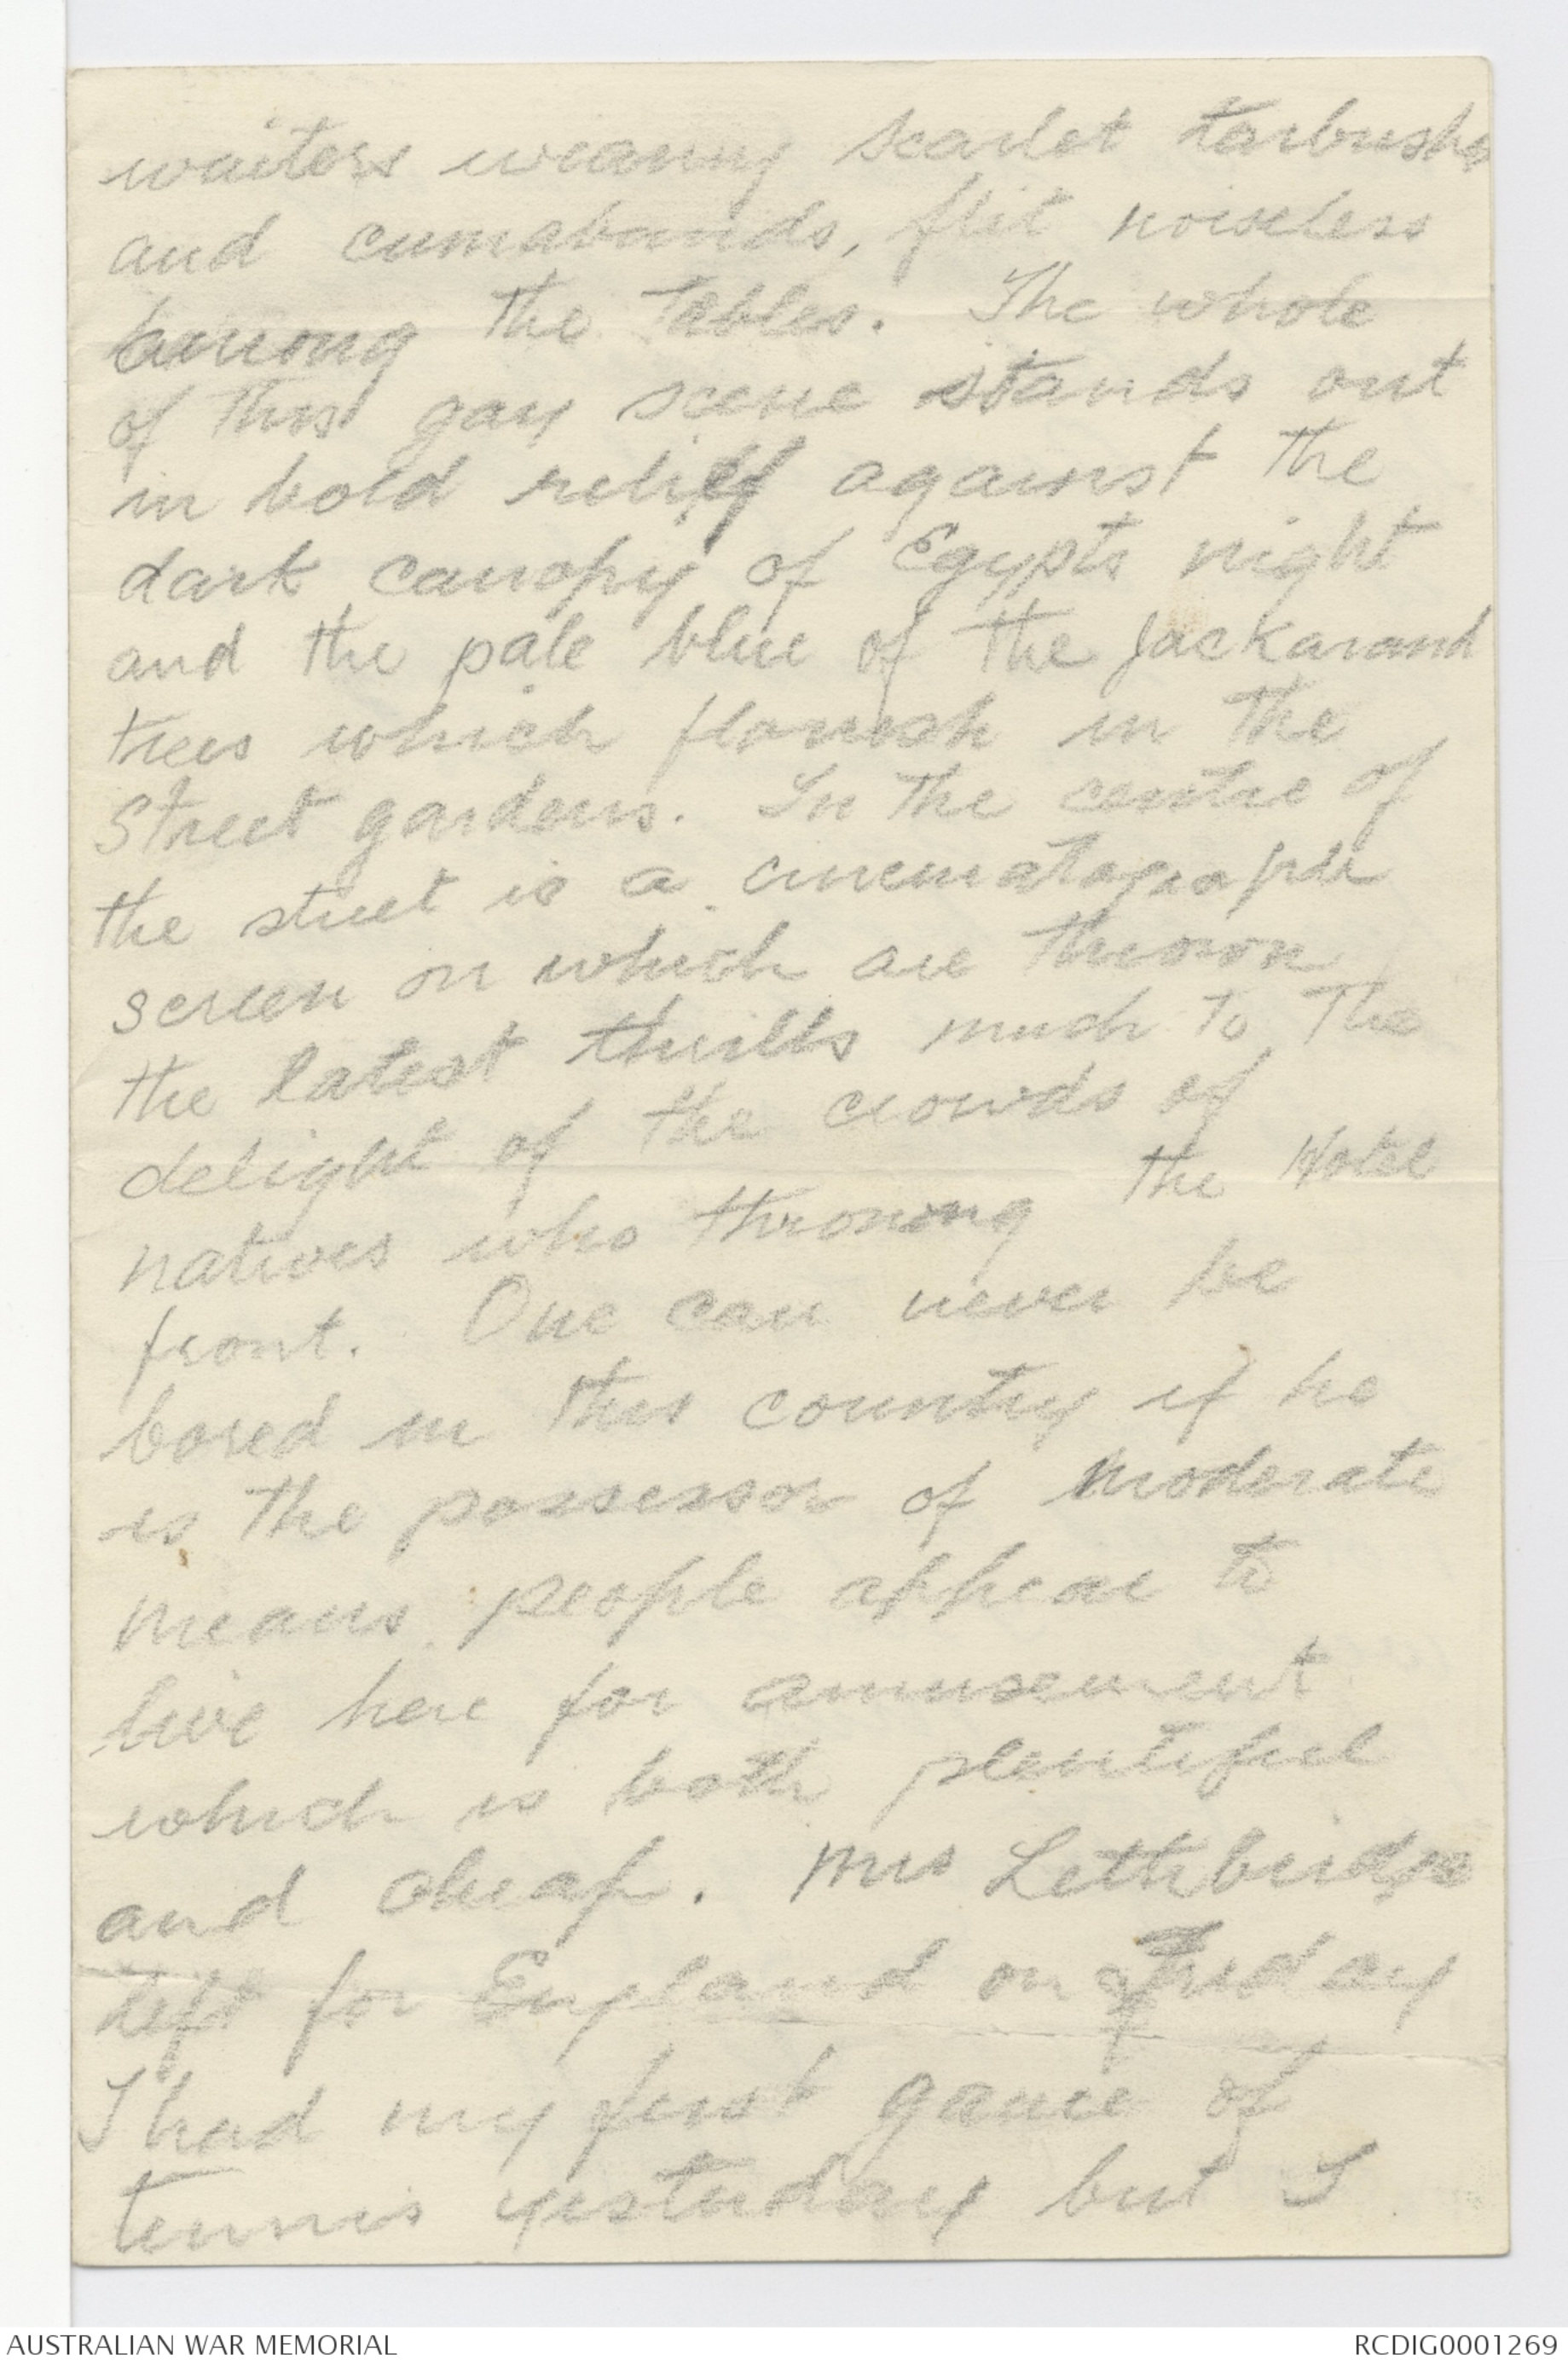 waiters wearing scarlet tarbushs
and cumabands, flit noiseless
among the tables. The whole
of this gay scene stands out
in bold relief against the
dark canopy of Egypts night
and the pale blue of the Jackarand
trees which flourish in the
Street gardens. In the centre of
the street is a cinematograph
screen on which are thrown
the latest thrills much to the
delight of the crowds of
natives who throng the Hotel
front. One can never be
bored in this country if he
is the possessor of moderate
means people appear to
live here for amusement
which is both plentiful
and cheap. Mrs Lethbirdge
left for England on Friday
I had my first game of
tennis yesterday but I
AUSTRALIAN WAR MEMORIAL
RCDIG0001269